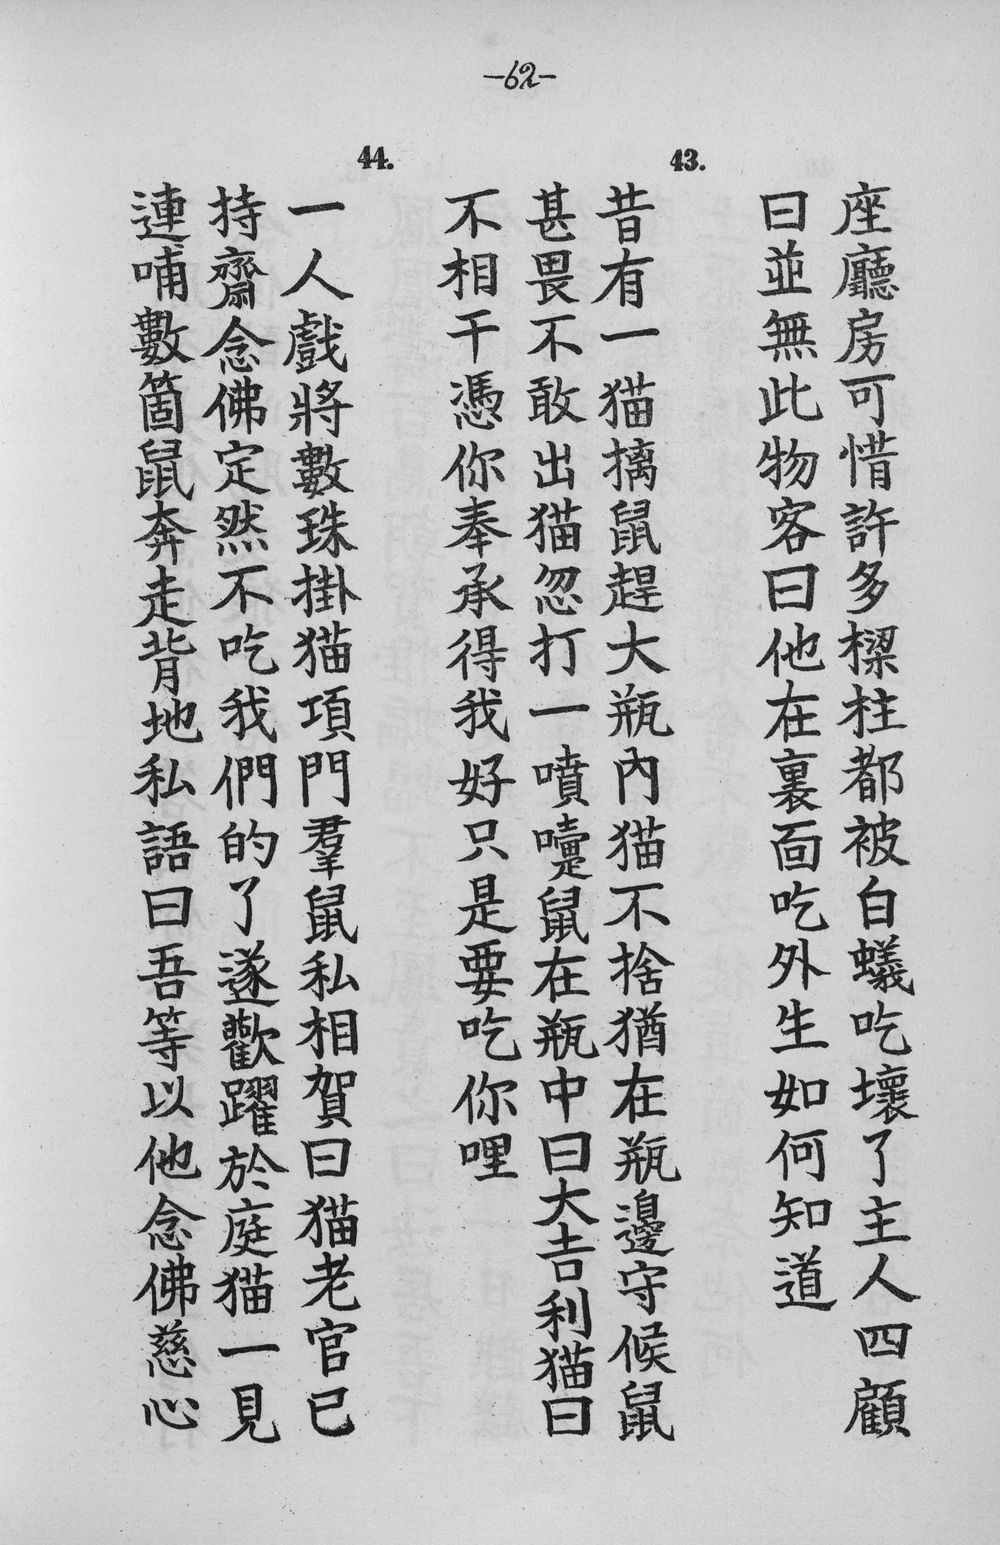 —62—
座廳房可惜許多樑柱都被白蟻吃壞了主人四顧
曰並無此物客曰他在裏面吃外生如何知道
43.
昔有一猫擒鼠趕大瓶內猫不捨猶在瓶邊守候鼠
甚畏不敢出猫忽打一噴嚏鼠在瓶中曰大吉利猫曰
不相干憑你奉承得我好只是要吃你哩
44.
一人戲將數珠掛猫項門羣鼠私相賀曰猫老官已
持齋念佛定然不吃我們的了遂歡躍於庭猫一見
連哺數箇鼠奔走背地私語曰吾等以他念佛慈心